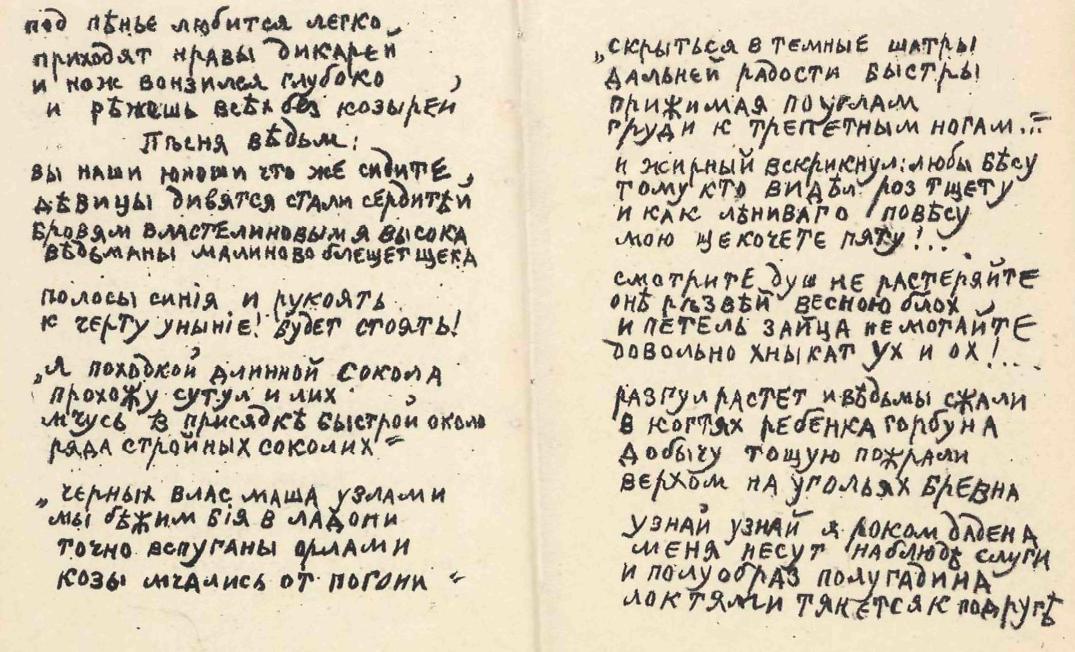 под пѣнье любится легко
приходят нравы дикарей
и нож вонзился глубоко
и рѣжешь всѣх без козырей
Пѣсня вѣдьм:
вы наши юноши что же сидите,
дѣвицы дивятся стали сердитѣй
бровям властелиновым я высока
вѣдьманы малиново блещет щека
полосы синія и рукоять
к черту уныніе! будет стоять!
„Я походкой длинной сокола
прохожу сутул и лих
мчусь в присядкѣ быстрой около
ряда стройных соколих“
„черных влас маша узлами
мы бѣжим бія в ладони
точно вспуганы орлами
козы мчались от погони“
„скрыться в темные шатры
дальней радости быстры
прижимая по углам
груди к трепетным ногам...“
и жирный вскрикнул: любы бѣсу
тому кто видѣл роз тщету
и как лѣниваго повѣсу
мою щекочете пяту!..
смотрите душ не растеряйте
онѣ рѣзвѣй весною блох,
и петель зайца не мотайте
довольно хныкат ух и ох!...
разгул растет и вѣдьмы сжали
в когтях ребенка горбуна
добычу тощую пожрали
верхом на угольях бревна
узнай узнай я роком дадена
меня несут наблюдѣ слуги
и полуобраз полугадина
локтями тянется к подругѣ